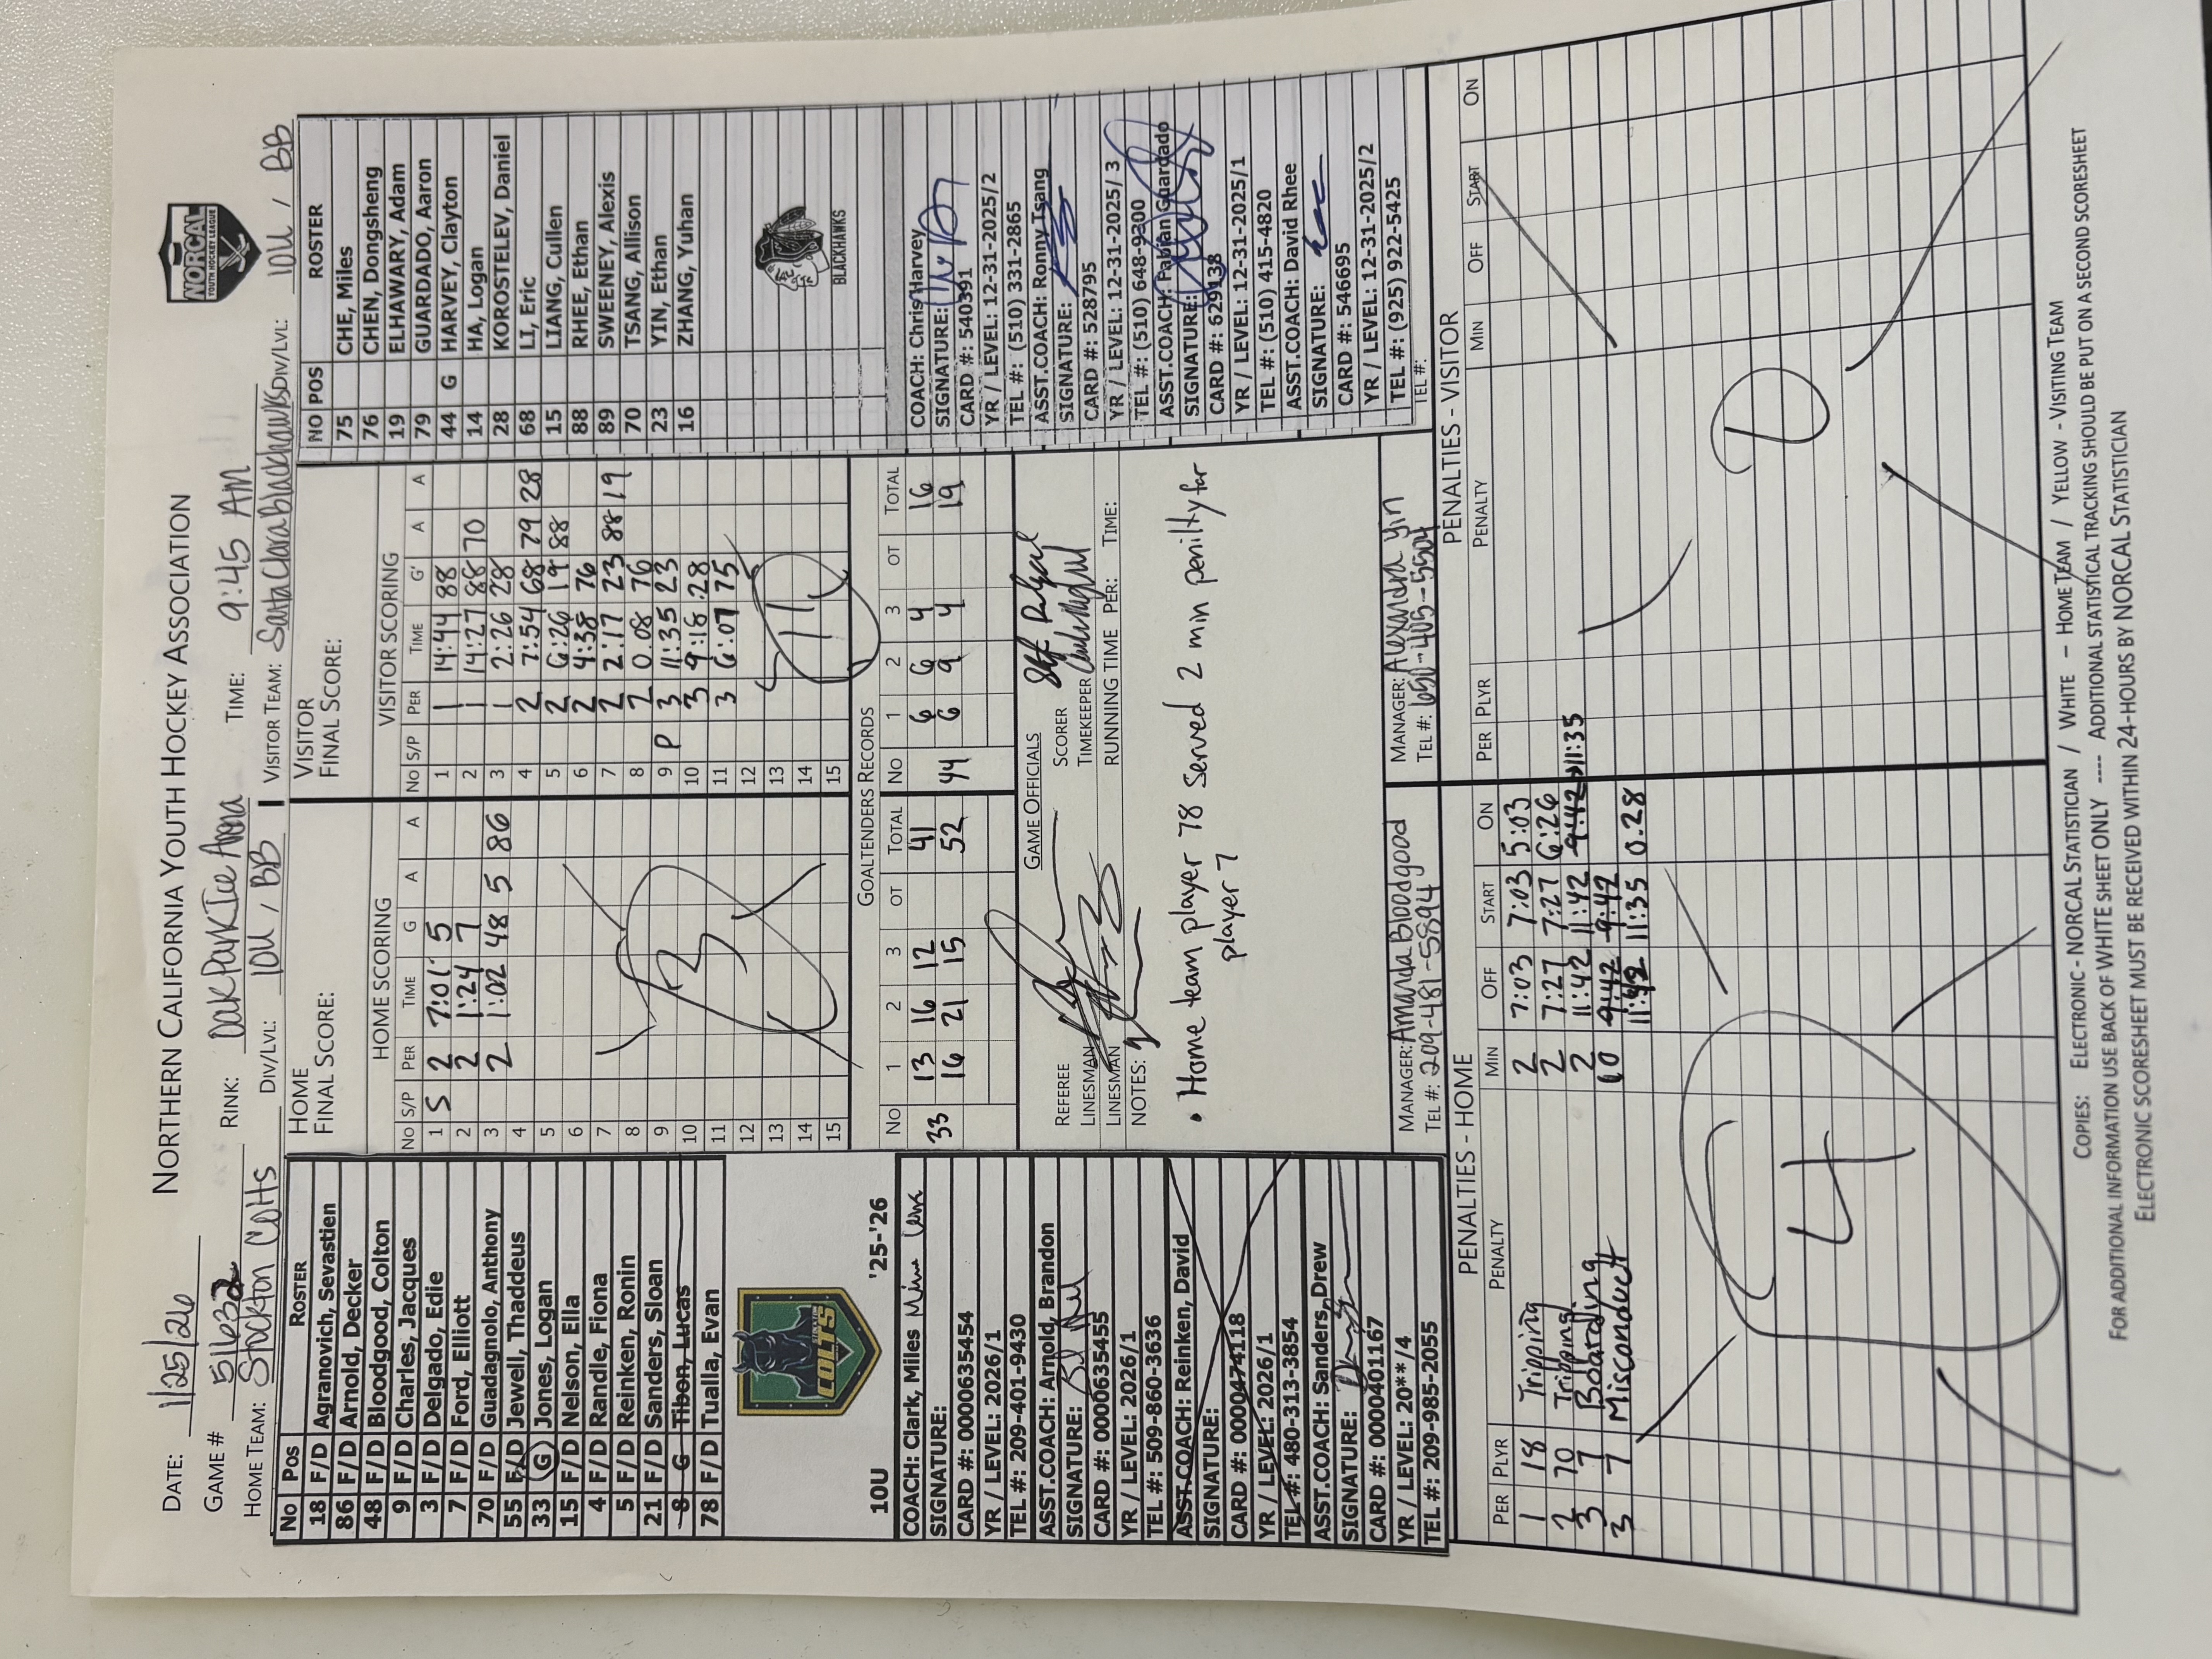 NORTHERN CALIFORNIA YOUTH HOCKEY ASSOCIATION
NORCAL
YOUTH HOCKEY LEAGUE
DATE: 1/25/26
GAME # 51632 RINK: Oak Park Ice Arena TIME: 9:45 AM
HOME TEAM: Stockton Colts DIV/LVL: 10U / BB VISITOR TEAM: Santa Clara blackhawks DIV/LVL: 10U / BB
NO POS ROSTER
18 F/D Agranovich, Sevastien
86 F/D Arnold, Decker
48 F/D Bloodgood, Colton
9 F/D Charles, Jacques
3 F/D Delgado, Edie
7 F/D Ford, Elliott
70 F/D Guadagnolo, Anthony
55 F/D Jewell, Thaddeus
33 G Jones, Logan
15 F/D Nelson, Ella
4 F/D Randle, Fiona
5 F/D Reinken, Ronin
21 F/D Sanders, Sloan
8 G Tibon, Lucas
78 F/D Tualla, Evan
COLTS
10U '25-'26
COACH: Clark, Miles
SIGNATURE:
CARD #: 0000635454
YR / LEVEL: 2026/1
TEL #: 209-401-9430
ASST.COACH: Arnold, Brandon
SIGNATURE:
CARD #: 0000635455
YR / LEVEL: 2026/1
TEL #: 509-860-3636
ASST.COACH: Reinken, David
SIGNATURE:
CARD #: 0000474118
YR / LEVEL: 2026/1
TEL #: 480-313-3854
ASST.COACH: Sanders, Drew
SIGNATURE:
CARD #: 0000401167
YR / LEVEL: 20**/4
TEL #: 209-985-2055
HOME
FINAL SCORE:
HOME SCORING
NO S/P PER TIME G A A
1 S 2 7:01 5
2 2 1:24 7
3 2 1:02 48 5 86
4
5
6
7
8
9
10
11
12
13
14
15
3
VISITOR
FINAL SCORE:
VISITOR SCORING
NO S/P PER TIME G A A
1 1 14:44 88
2 1 14:27 88 70
3 1 2:26 28
4 2 7:54 68 79 28
5 2 6:26 19 88
6 2 4:38 76
7 2 2:17 23 88 19
8 2 0.08 76
9 P 3 11:35 23
10 3 9:18 28
11 3 6:07 75
12
13
14
15
11
GOALTENDERS RECORDS
NO 1 2 3 OT TOTAL NO 1 2 3 OT TOTAL
33 13 16 12 41 44 6 6 4 16
16 21 15 52 6 9 4 19
GAME OFFICIALS
REFEREE SCORER
LINESMAN TIMEKEEPER
LINESMAN RUNNING TIME PER: TIME:
NOTES:
• Home team player 78 served 2 min penilty for
player 7
MANAGER: Amanda Bloodgood
TEL #: 209-481-5894
MANAGER: Alexandra Yin
TEL #: 650-405-5504
NO POS ROSTER
75 CHE, Miles
76 CHEN, Dongsheng
19 ELHAWARY, Adam
79 GUARDADO, Aaron
44 G HARVEY, Clayton
14 HA, Logan
28 KOROSTELEV, Daniel
68 LI, Eric
15 LIANG, Cullen
88 RHEE, Ethan
89 SWEENEY, Alexis
70 TSANG, Allison
23 YIN, Ethan
16 ZHANG, Yuhan
BLACKHAWKS
COACH: Chris Harvey
SIGNATURE:
CARD #: 540391
YR / LEVEL: 12-31-2025/2
TEL #: (510) 331-2865
ASST.COACH: Ronny Tsang
SIGNATURE:
CARD #: 528795
YR / LEVEL: 12-31-2025/ 3
TEL #: (510) 648-9200
ASST.COACH: Fabian Guardado
SIGNATURE:
CARD #: 629138
YR / LEVEL: 12-31-2025/1
TEL #: (510) 415-4820
ASST.COACH: David Rhee
SIGNATURE:
CARD #: 546695
YR / LEVEL: 12-31-2025/2
TEL #: (925) 922-5425
TEL #:
PENALTIES - HOME
PER PLYR PENALTY MIN OFF START ON
1 18 Tripping 2 7:03 7:03 5:03
2 70 Tripping 2 7:27 7:27 6:26
3 7 Boarding 2 11:42 11:42 9:42 →11:35
3 7 Misconduct 10 9:42 9:42
11:42 11:35 0.28
4
PENALTIES - VISITOR
PER PLYR PENALTY MIN OFF START ON
0
COPIES: ELECTRONIC - NORCAL STATISTICIAN / WHITE – HOME TEAM / YELLOW - VISITING TEAM
FOR ADDITIONAL INFORMATION USE BACK OF WHITE SHEET ONLY ---- ADDITIONAL STATISTICAL TRACKING SHOULD BE PUT ON A SECOND SCORESHEET
ELECTRONIC SCORESHEET MUST BE RECEIVED WITHIN 24-HOURS BY NORCAL STATISTICIAN